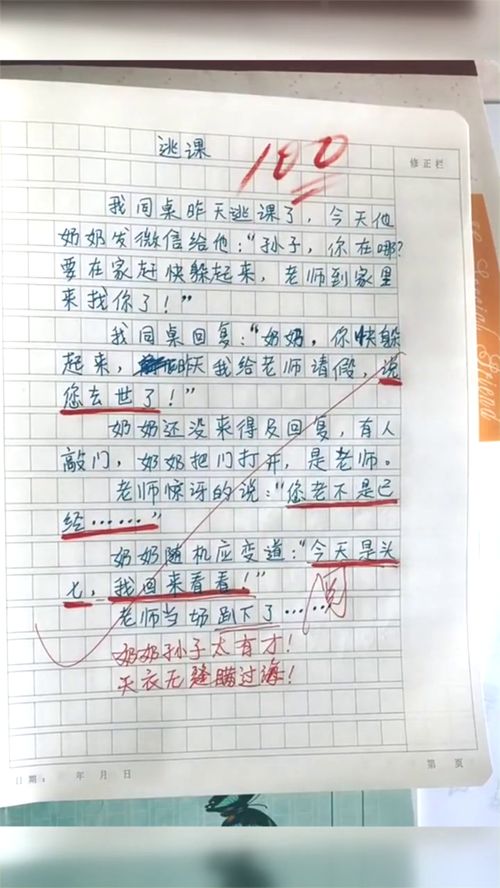 逃课
100
修正栏
我同桌昨天逃课了，今天他
奶奶发微信给他：“孙子，你在哪？
要在家赶快躲起来，老师到家里
来找你了！”
我同桌回复：“奶奶，你快躲
起来，昨天我给老师请假，说
您去世了！”
奶奶还没来得及回复，有人
敲门，奶奶把门打开，是老师。
老师惊讶的说：“您老不是已
经……”
奶奶随机应变道：“今天是头
七，我回来看看！”
老师当场趴下了……
阅
奶奶孙子太有才！
天衣无缝瞒过海！
日期： 年 月 日
第 页